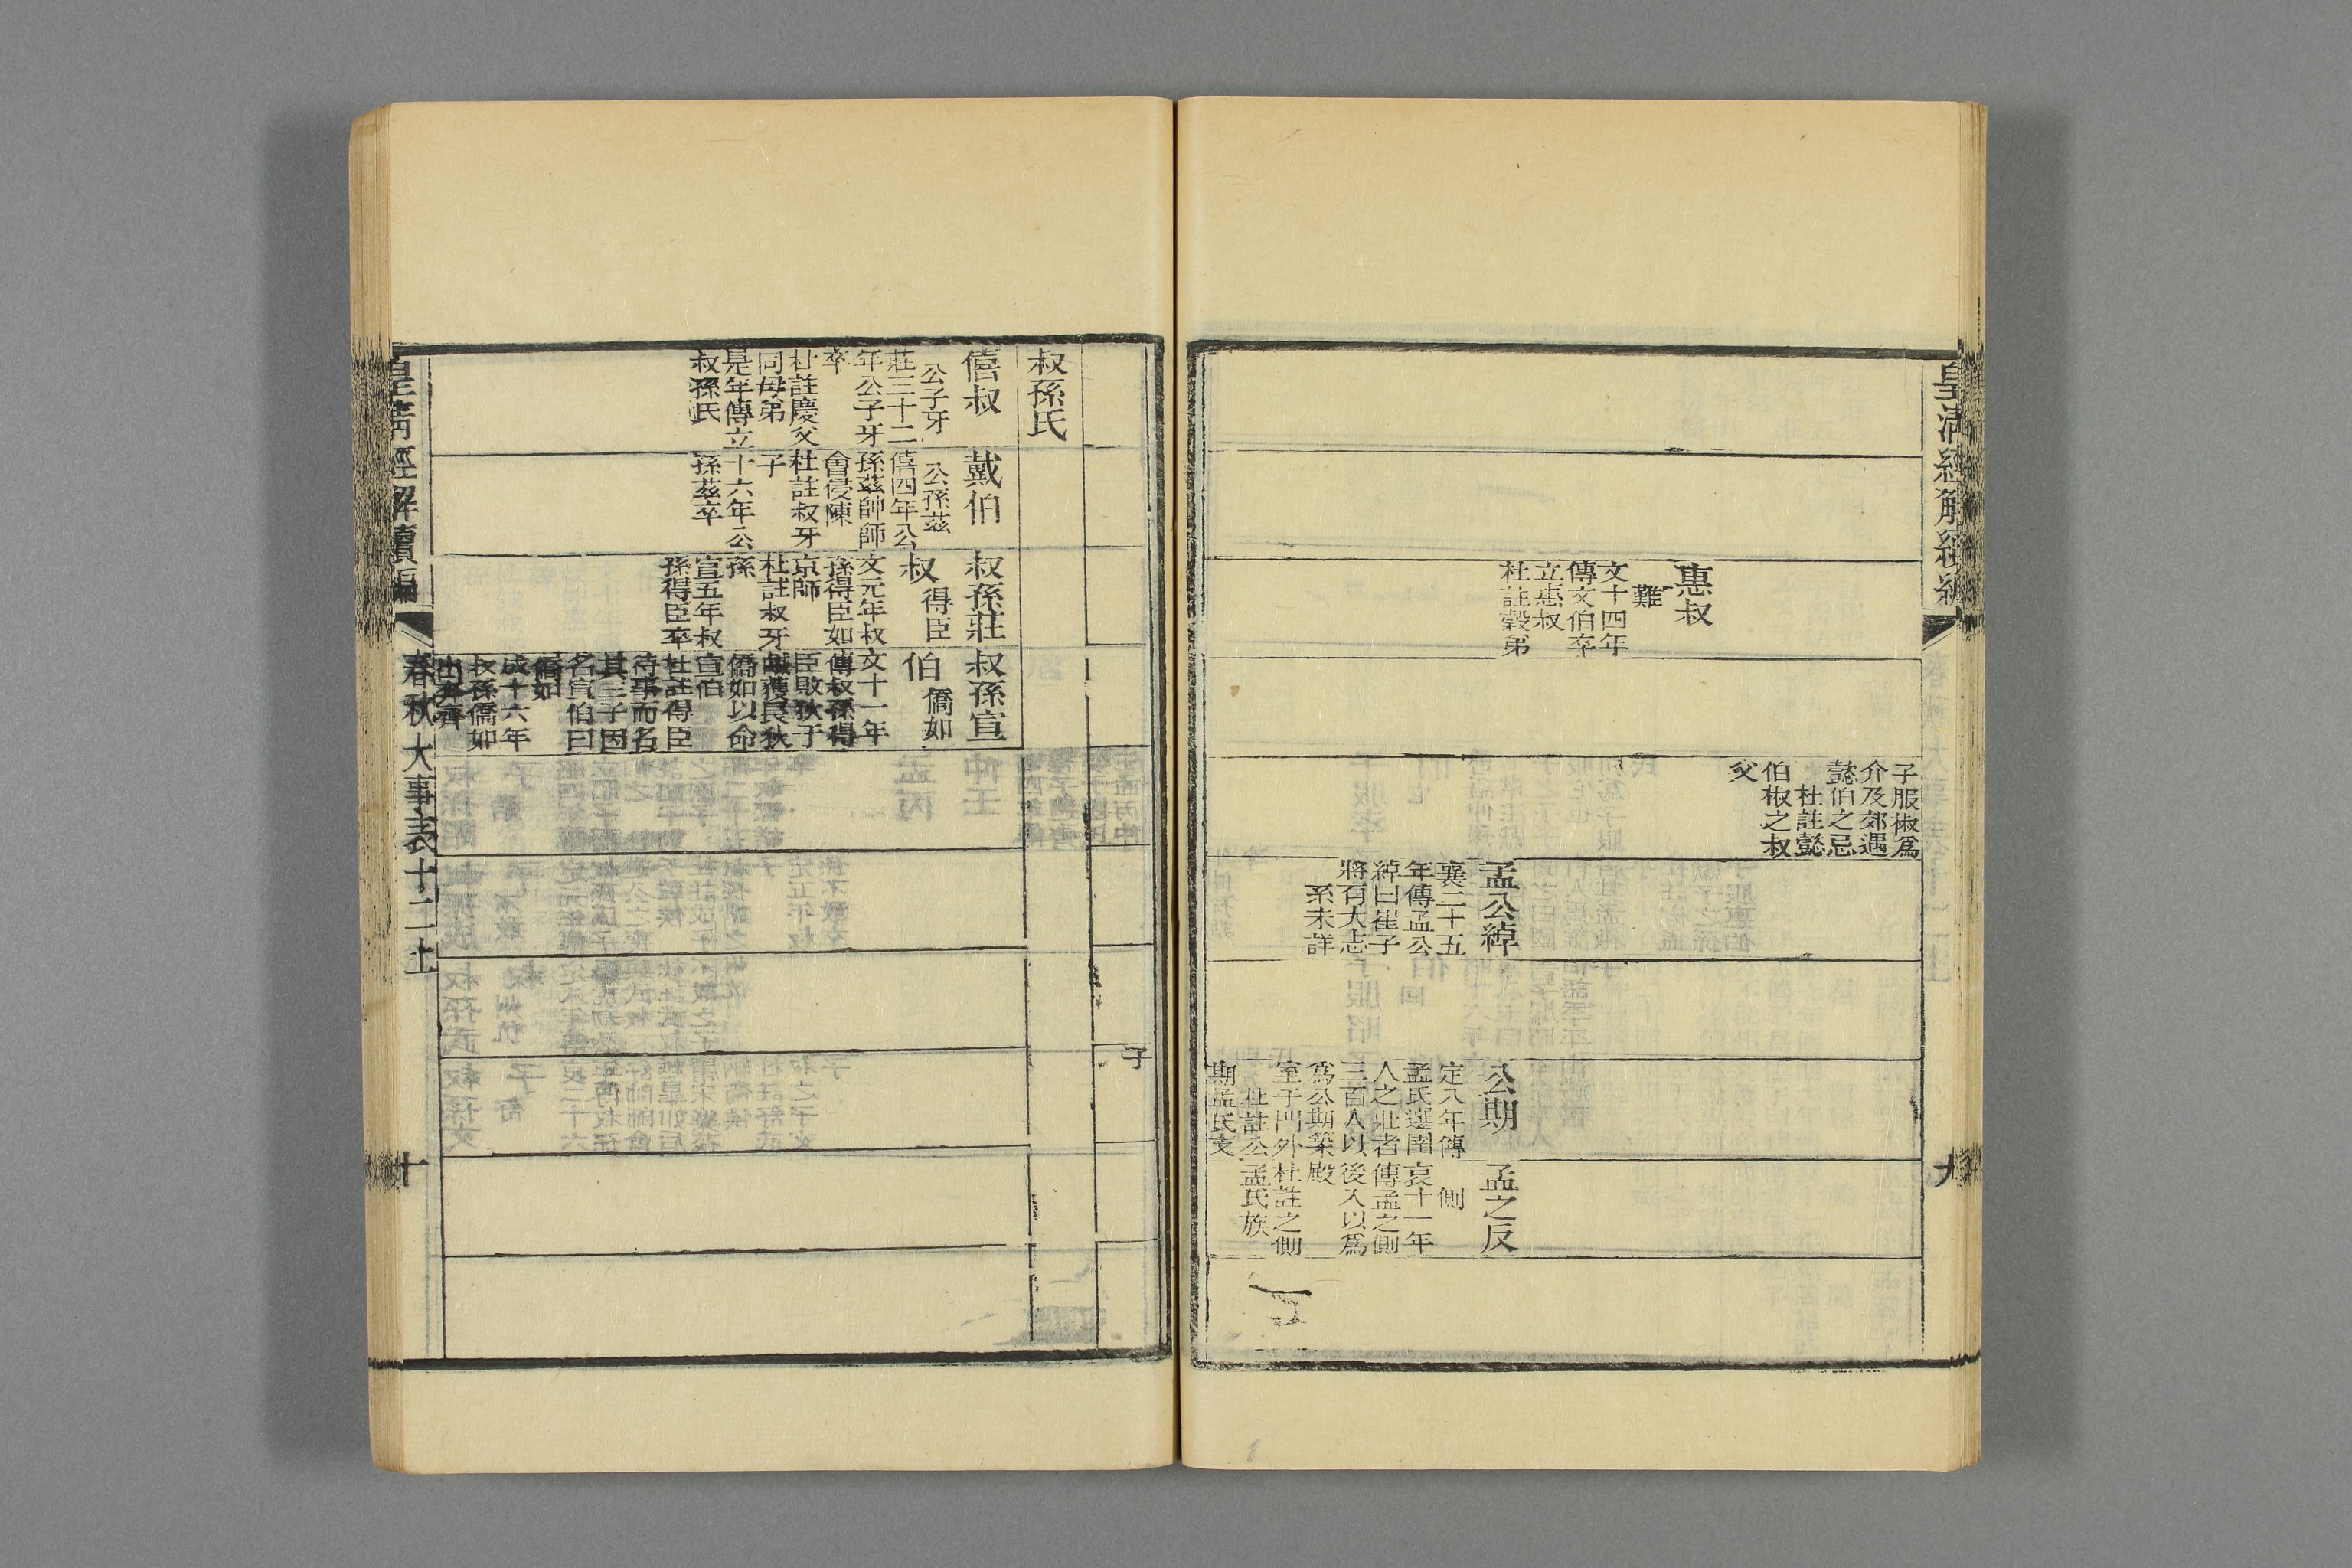 皇清經解續編
九
惠叔
難
文十四年
傳文伯卒
立惠叔
杜註穀弟
子服椒爲
介及郊遇
懿伯之忌
杜註懿
伯椒之叔
父
孟公綽
襄二十五
年傳孟公
綽曰崔子
將有大志
系未詳
公期
定八年傳
孟氏選圉
人之壯者
三百人以
爲公期築
室于門外
杜註公
期孟氏支
子
孟之反
側
哀十一年
傳孟之側
後入以爲
殿
杜註之側
孟氏族
叔孫氏
僖叔
公子牙
莊三十二
年公子牙
卒
杜註慶父
同母弟
是年傳立
叔孫氏
戴伯
公孫茲
僖四年公
孫茲帥師
會侵陳
杜註叔牙
子
十六年公
孫茲卒
叔孫莊
叔 得臣
文元年叔
孫得臣如
京師
杜註叔牙
孫
宣五年叔
孫得臣卒
叔孫宣
伯 僑如
文十一年
傳叔孫得
臣敗狄于
鹹獲長狄
僑如以命
宣伯
杜註得臣
待事而名
其三子因
名宣伯曰
僑如
成十六年
叔孫僑如
出奔齊
皇清經解續編
春秋大事表十二上
十